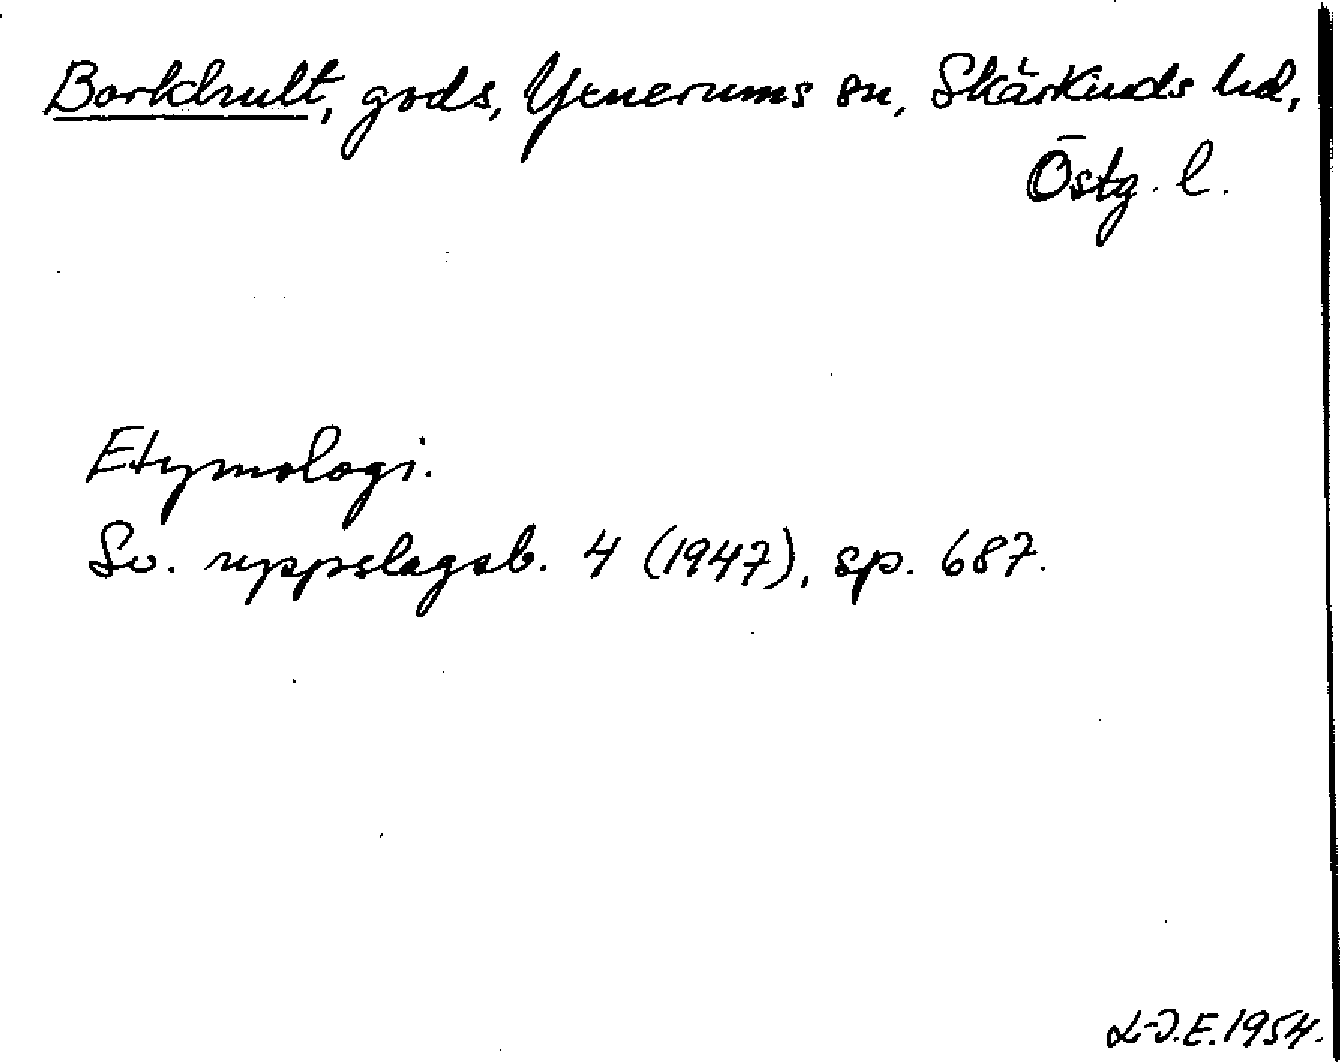 Borkhult, gods, Yxnerums sn, Skärkinds hd,
Östg. l.
Etymologi.
Sv. uppslagsb. 4 (1947), sp. 687.
L-J.E. 1954.